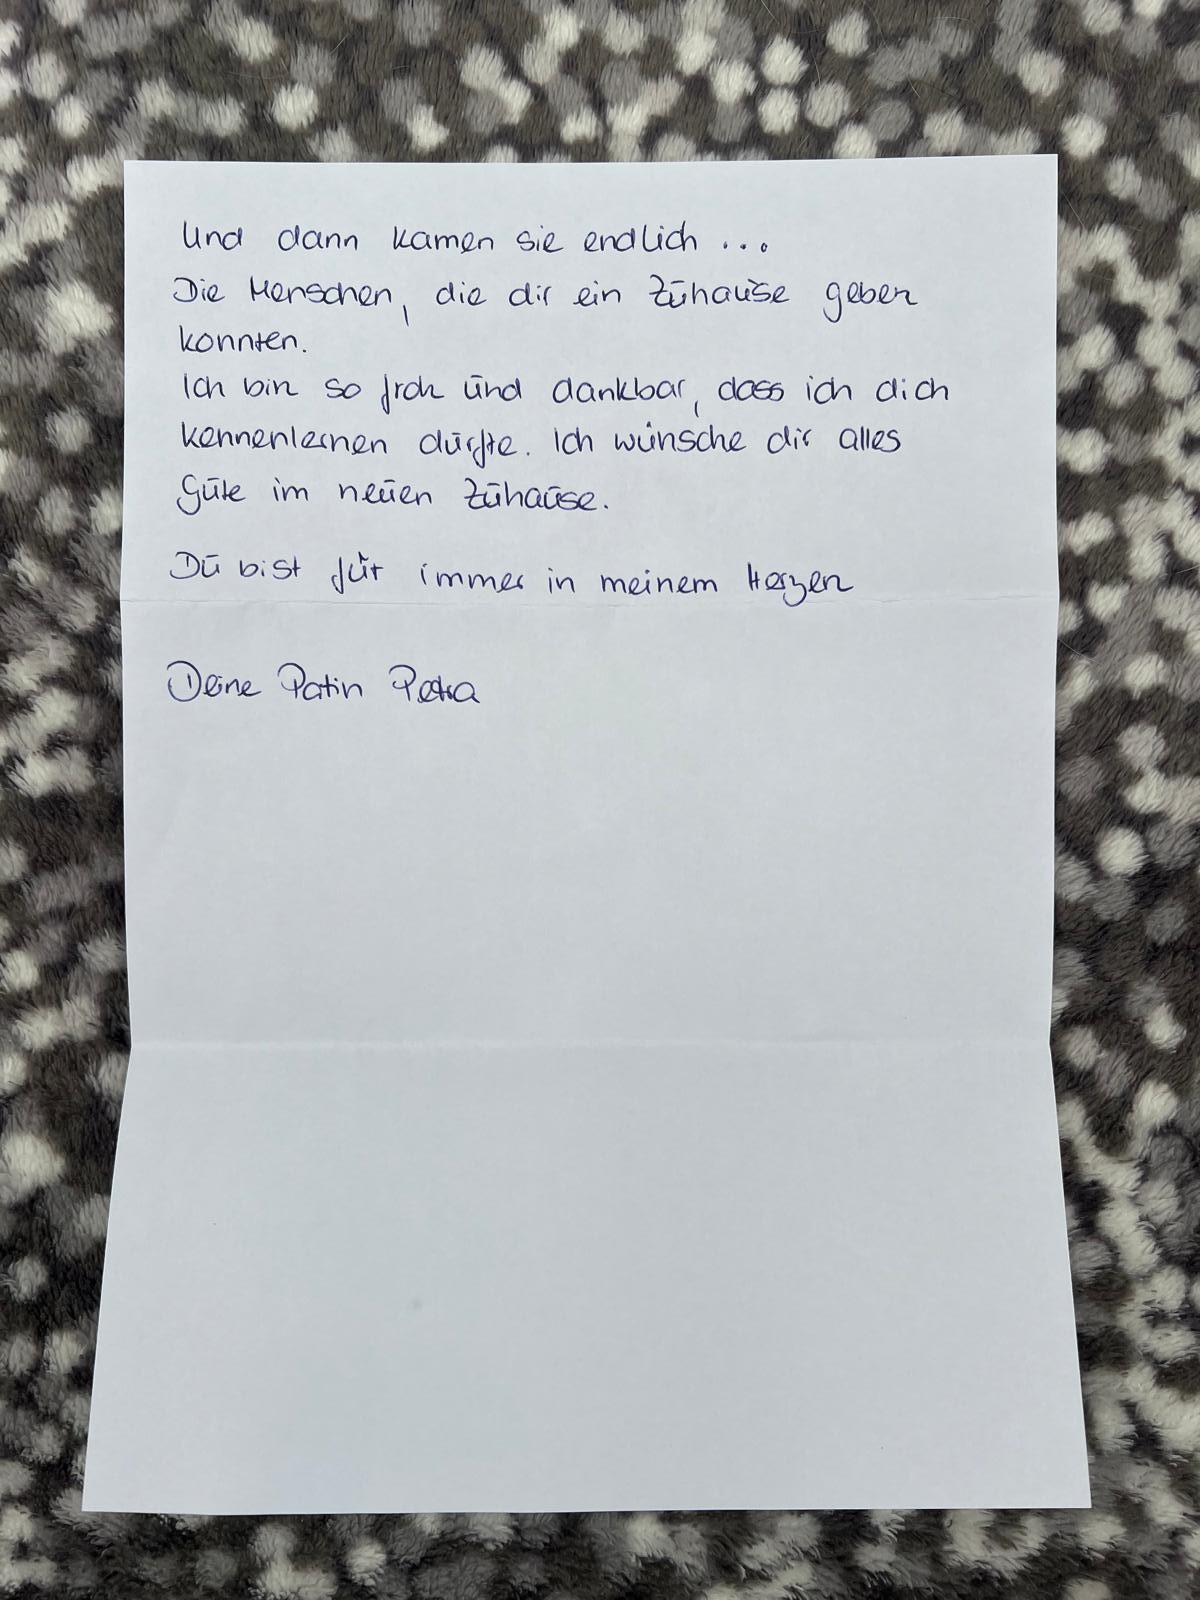 Und dann kamen sie endlich ...
Die Menschen, die dir ein Zuhause geben
konnten.
Ich bin so froh und dankbar, dass ich dich
kennenlernen durfte. Ich wünsche dir alles
Gute im neuen Zuhause.
Du bist für immer in meinem Herzen
Deine Patin Petra